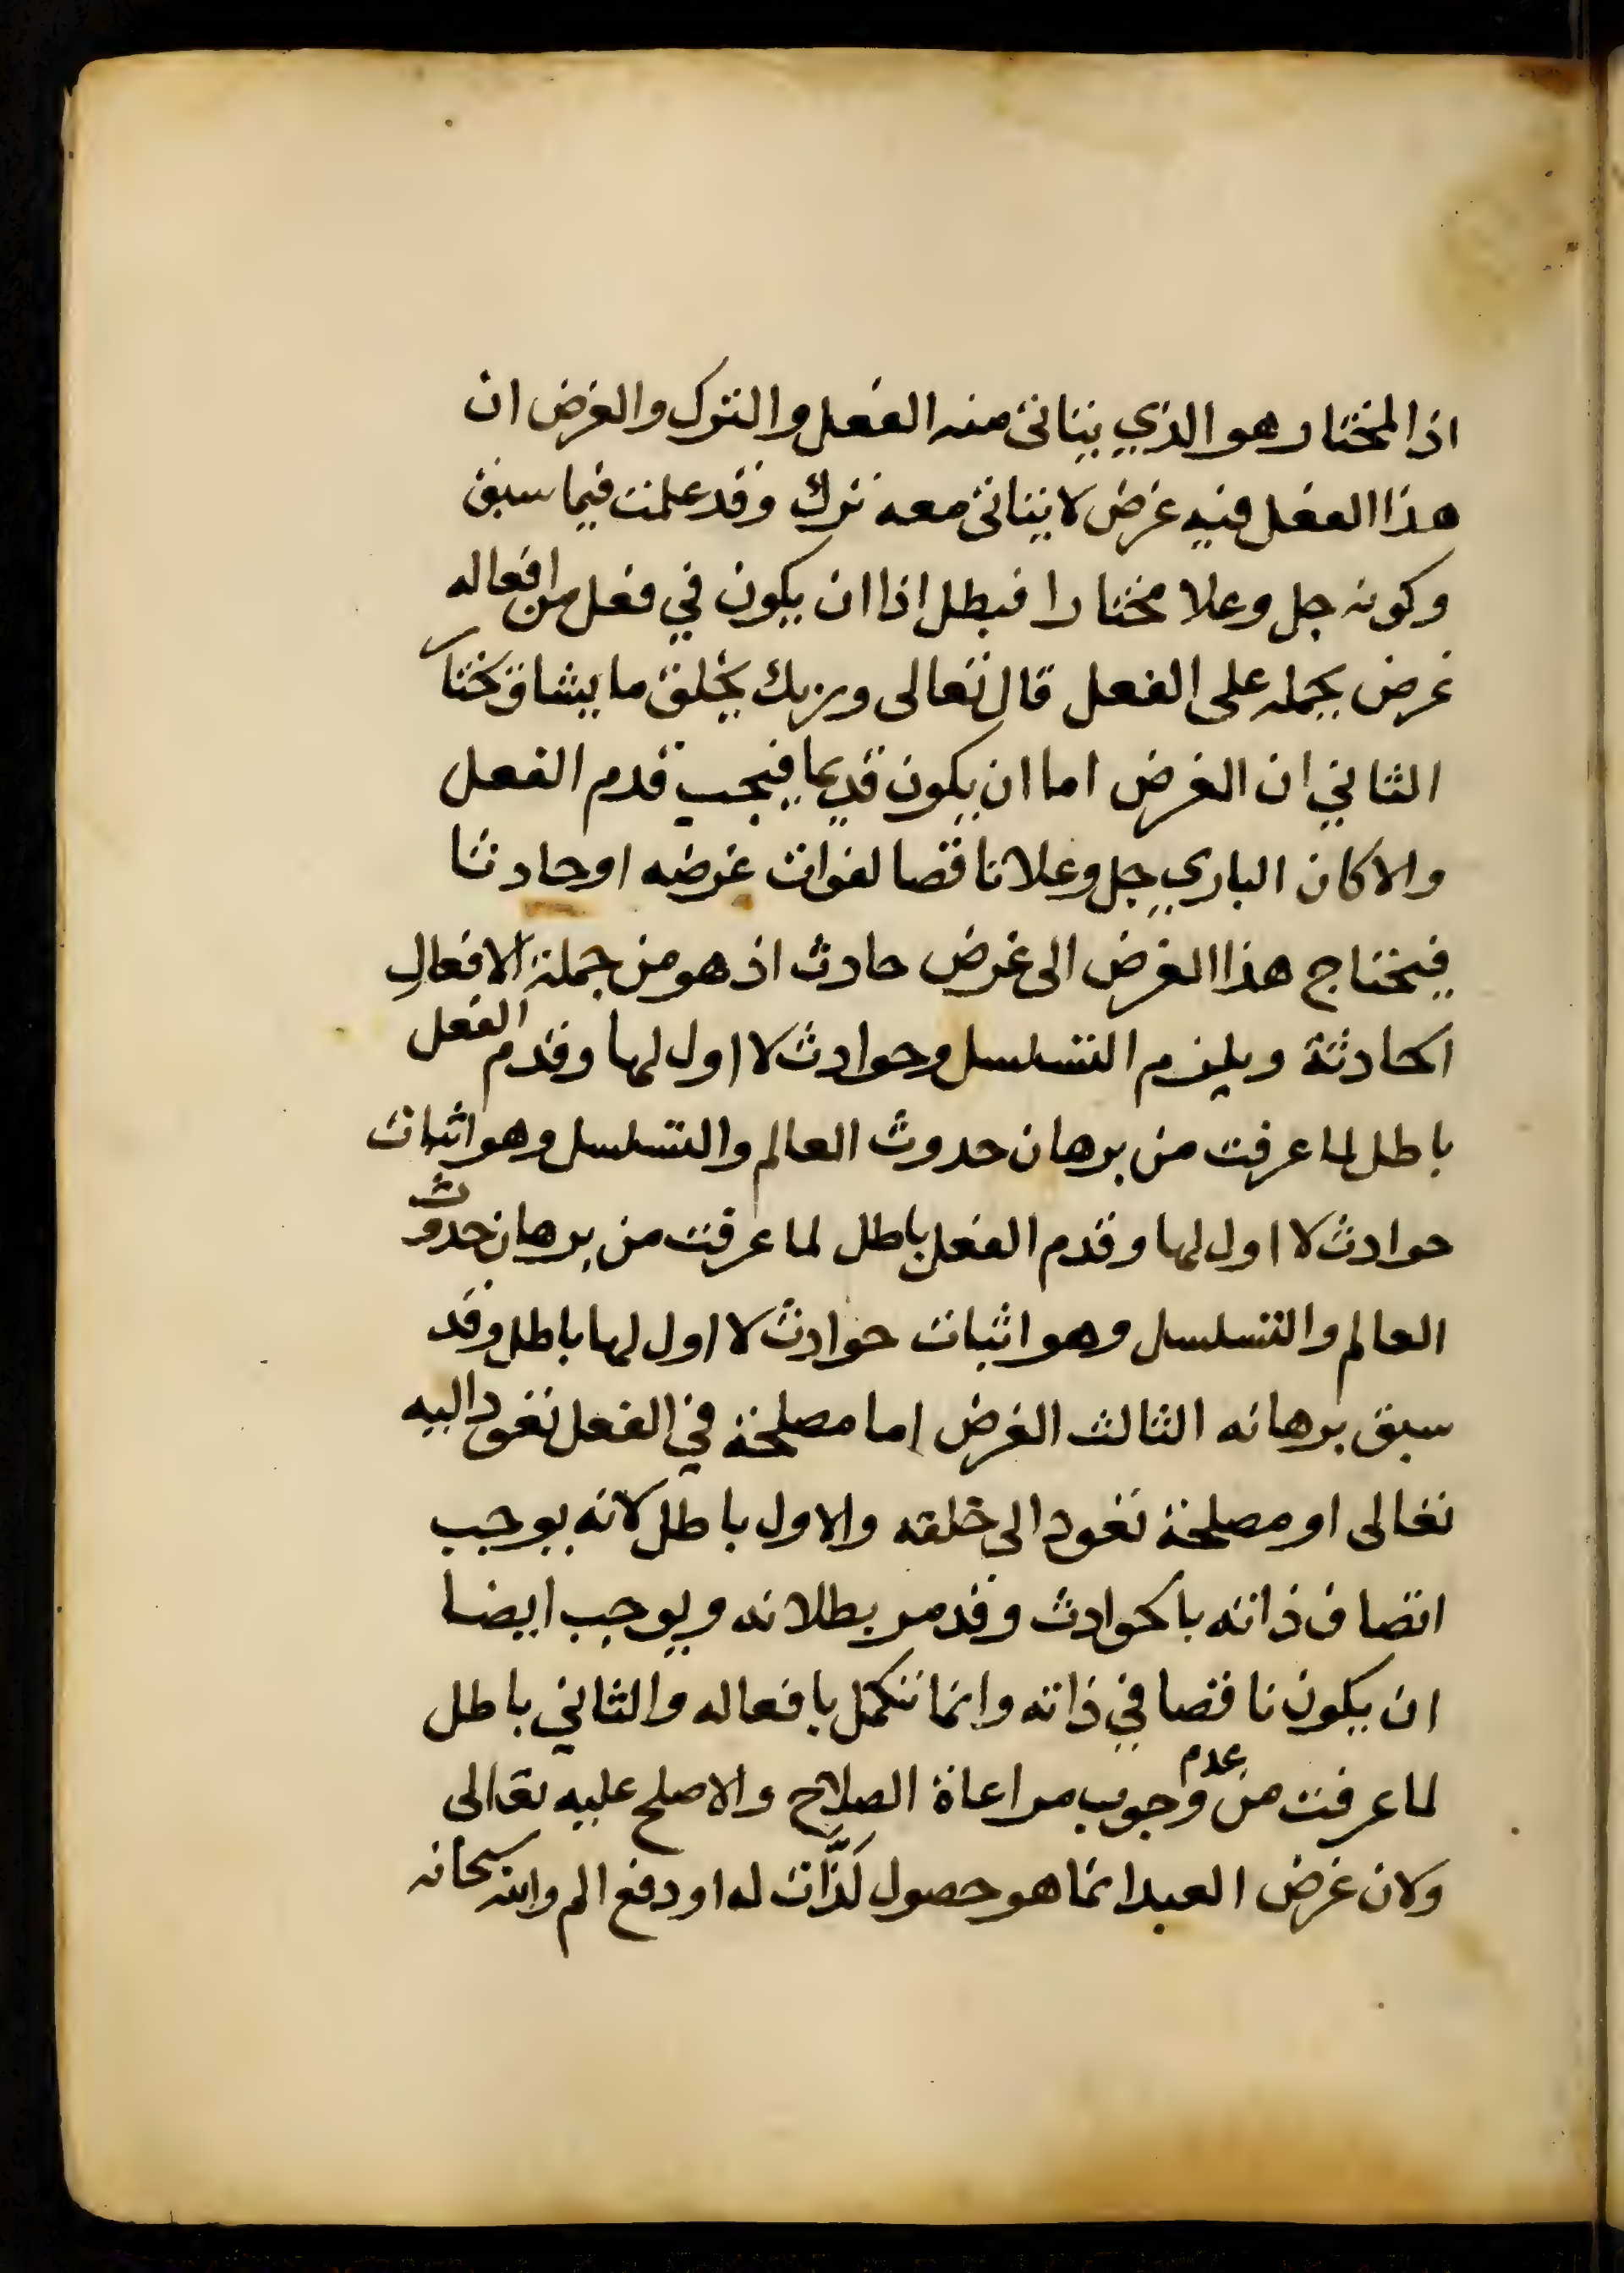 اذ المختار هو الذي يتاتى منه الفعل والترك والغرض ان
هذا الفعل فيه غرض لا يتاتى معه ترك وقد علمت فيما سبق
وكونه جل وعلا مختارا فبطل اذا ان يكون في فعل من افعاله
غرض يحمله على الفعل قال تعالى وربك يخلق ما يشا ويختار
الثاني ان الغرض اما ان يكون قديما فيجب قدم الفعل
والا كان الباري جل وعلا ناقصا لفوات غرضه او حادثا
فيحتاج هذا الغرض الى غرض حادث اذ هو من جملة الافعال
الحادثة ويلزم التسلسل وحوادث لا اول لها وقدم الفعل
باطل لما عرفت من برهان حدوث العالم والتسلسل وهو اثبات
حوادث لا اول لها وقدم الفعل باطل لما عرفت من برهان حدوث
العالم والتسلسل وهو اثبات حوادث لا اول لها باطل وقد
سبق برهانه الثالث الغرض اما مصلحة في الفعل تعود اليه
تعالى او مصلحة تعود الى خلقه والاول باطل لانه يوجب
اتصاف ذاته بالحوادث وقد مر بطلانه ويوجب ايضا
ان يكون ناقصا في ذاته وانما تكمل بافعاله والثاني باطل
لما عرفت من عدم وجوب مراعاة الصلاح والاصلح عليه تعالى
ولان غرض العبد انما هو حصول لَذَّات له او دفع الم والله سبحانه